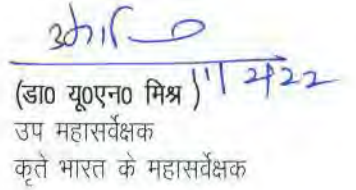 (डा० यू०एन० मिश्र )
उप महासर्वेक्षक
कृते भारत के महासर्वेक्षक